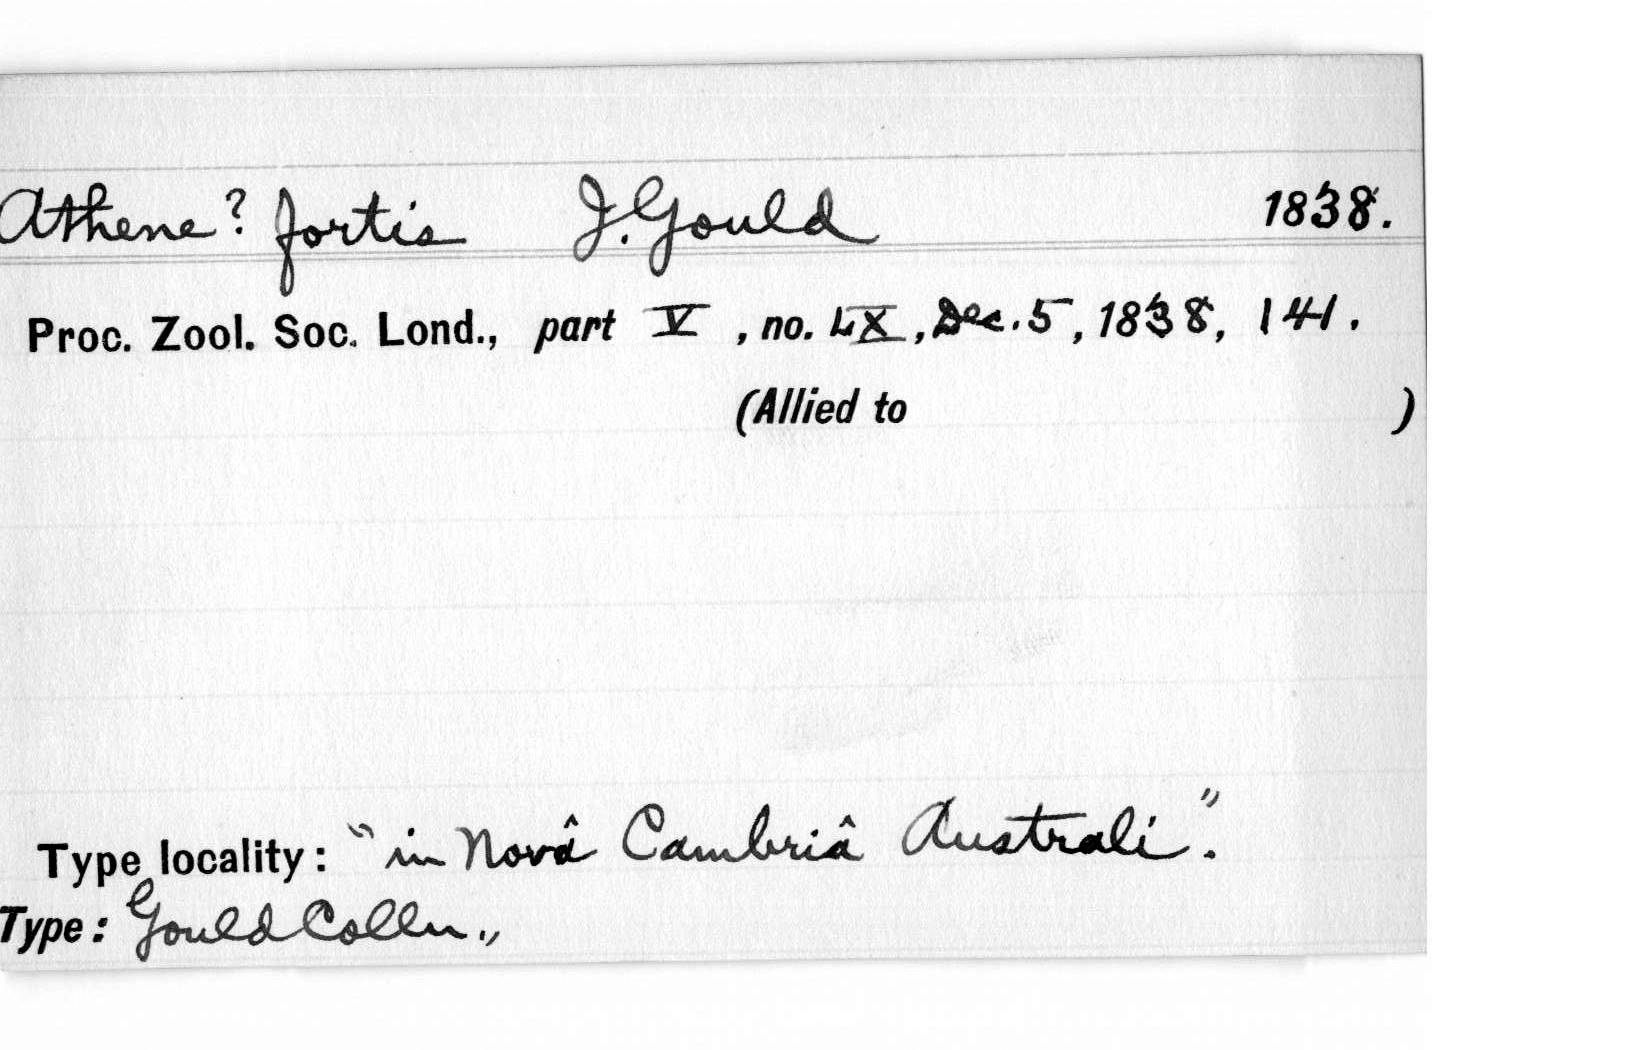 Athene? fortis J. Gould 1838.
Proc. Zool. Soc. Lond., part V, no. LX, Dec. 5, 1838, 141.
(Allied to )
Type locality: "in Novâ Cambriâ Australi".
Type: Gould Colln.,